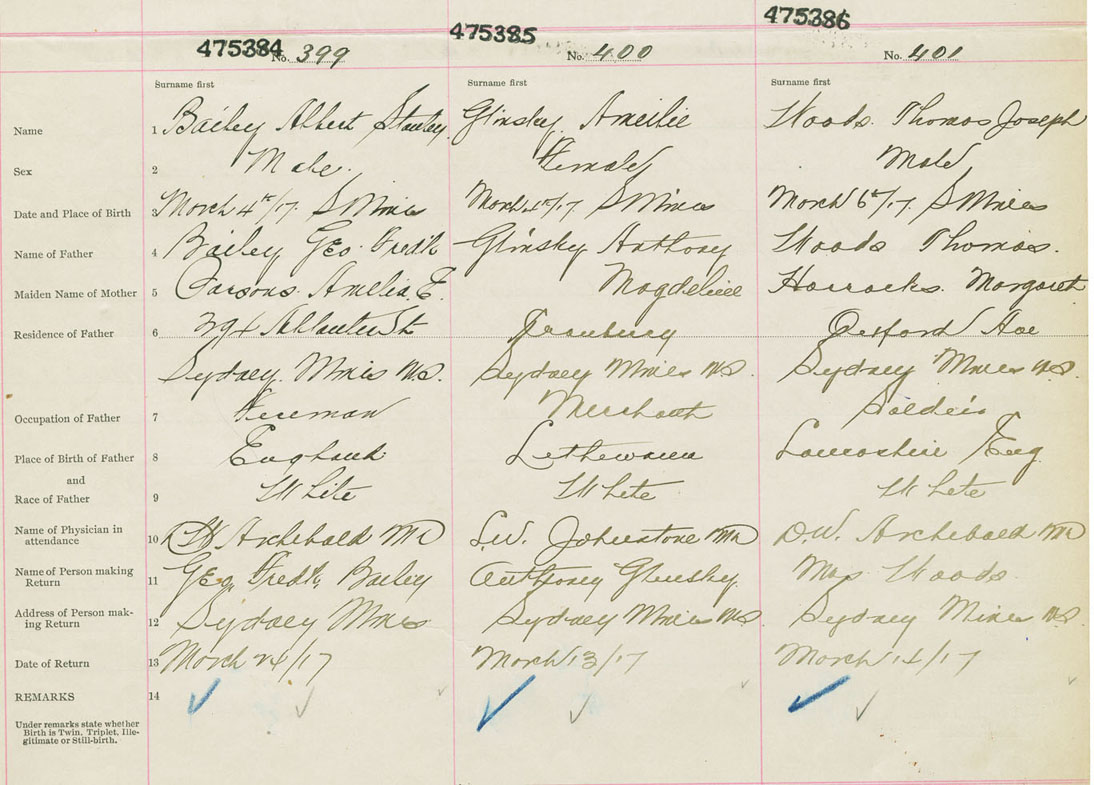 475384 475385 475386
No. 399 No. 400 No. 401
Surname first Surname first Surname first
Name 1 Bailey Albert Stanley Glinsky Ameilie Woods. Thomas Joseph
Sex 2 Male. Female Male
Date and Place of Birth 3 March 4th/17. S Mines March 4th/17 S Mines March 6th/17. S Mines
Name of Father 4 Bailey Geo. Fredk Glinsky Anthony Woods Thomas.
Maiden Name of Mother 5 Parsons. Amelia E. Magdeline Horrocks. Margaret
Residence of Father 6 Oxford Ave
Sydney Mines N.S. Sydney Mines N.S. Sydney Mines N.S.
Occupation of Father 7 Fireman Merchant Soldier
Place of Birth of Father 8 England Lancashire Eng
and
Race of Father 9 White White White
Name of Physician in
attendance 10 Archibald MD S.W. Johnstone MD D.W. Archibald MD
Name of Person making
Return 11 Geo. Fredk. Bailey Anthony Glinsky Woods
Address of Person mak-
ing Return 12 Sydney Mines Sydney Mines N.S. Sydney Mines N.S.
Date of Return 13 March 24/17 March 13/17 March 14/17
REMARKS 14
Under remarks state whether
Birth is Twin, Triplet, Ille-
gitimate or Still-birth.